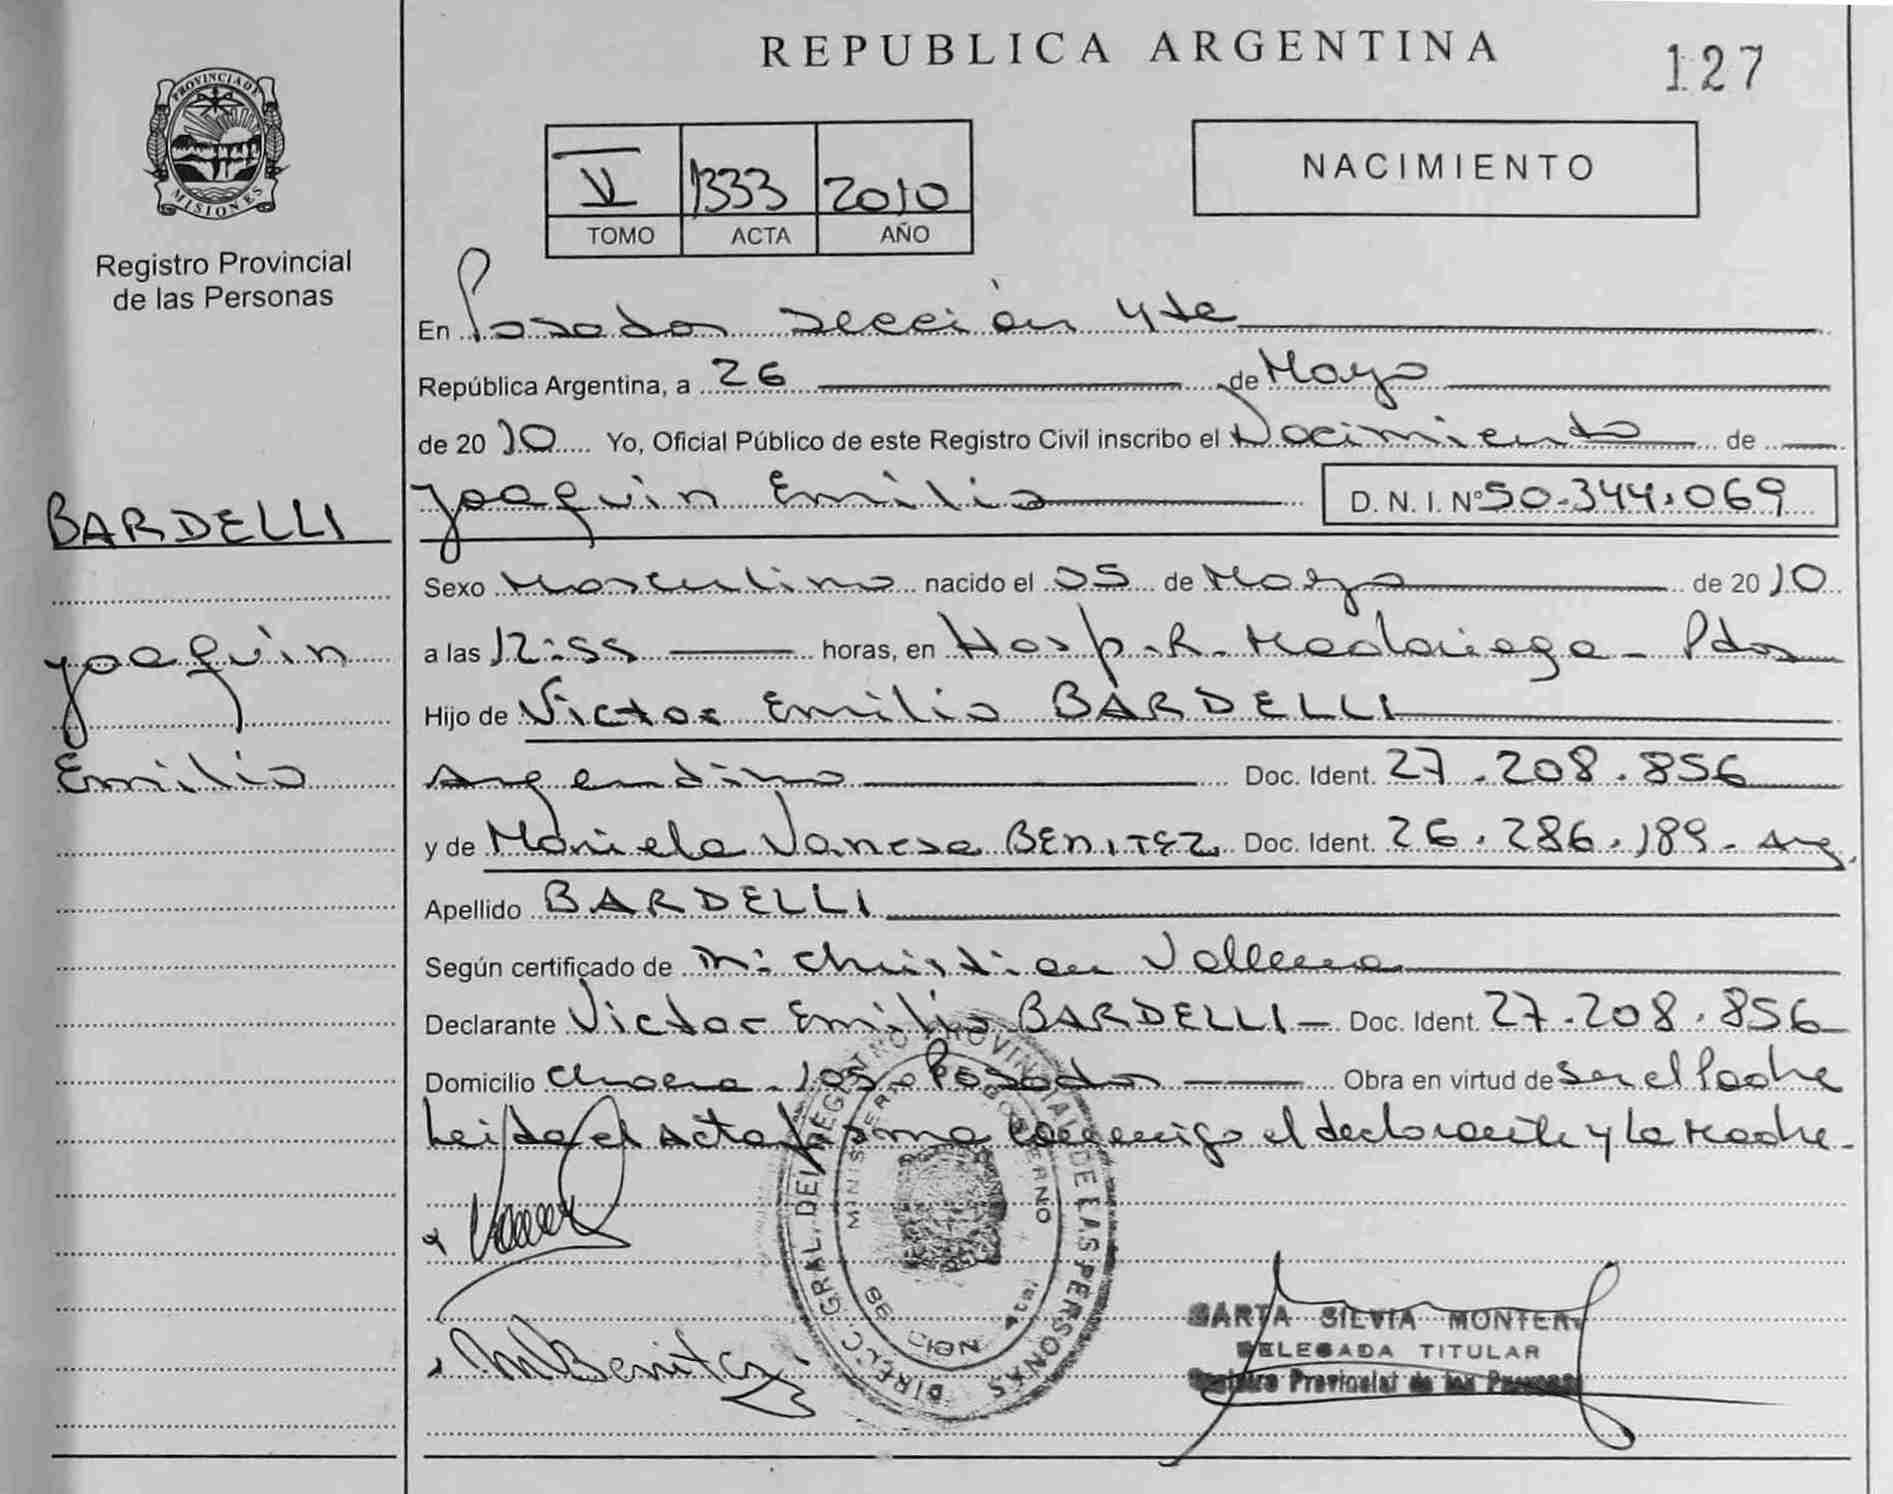 REPUBLICA ARGENTINA
127
PROVINCIA DE MISIONES
Registro Provincial
de las Personas
V 1333 2010
TOMO ACTA AÑO
NACIMIENTO
En Posadas Sección 4ta
República Argentina, a 26 de Mayo
de 2010 Yo, Oficial Público de este Registro Civil inscribo el Nacimiento de
BARDELLI
Joaquin Emilio D. N. I. Nº 50.344.069
Sexo Masculino nacido el 05 de Mayo de 2010
Joaquin
a las 12:55 horas, en Hosp. R. Madariaga - Pdas
Hijo de Victor Emilio BARDELLI
Emilio
Argentino Doc. Ident. 27.208.856
y de Mariela Vanesa BENITEZ Doc. Ident. 26.286.189 - Arg.
Apellido BARDELLI
Según certificado de Christian
Declarante Victor Emilio BARDELLI - Doc. Ident. 27.208.856
Domicilio Chacra - 105 - Posadas Obra en virtud de Ser el Padre
Leida el acta firma conmigo el declarante y la Madre.
DIRECC. GRAL. DEL REGISTRO PROVINCIAL DE LAS PERSONAS
MINISTERIO DE GOBIERNO
MBenitez
SILVIA MONTER
DELEGADA TITULAR
Registro Provincial de las Personas